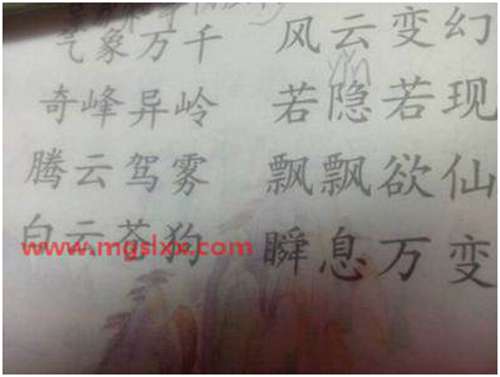 气象万千 风云变幻
奇峰异岭 若隐若现
腾云驾雾 飘飘欲仙
白云苍狗 瞬息万变
www.mgslxx.com